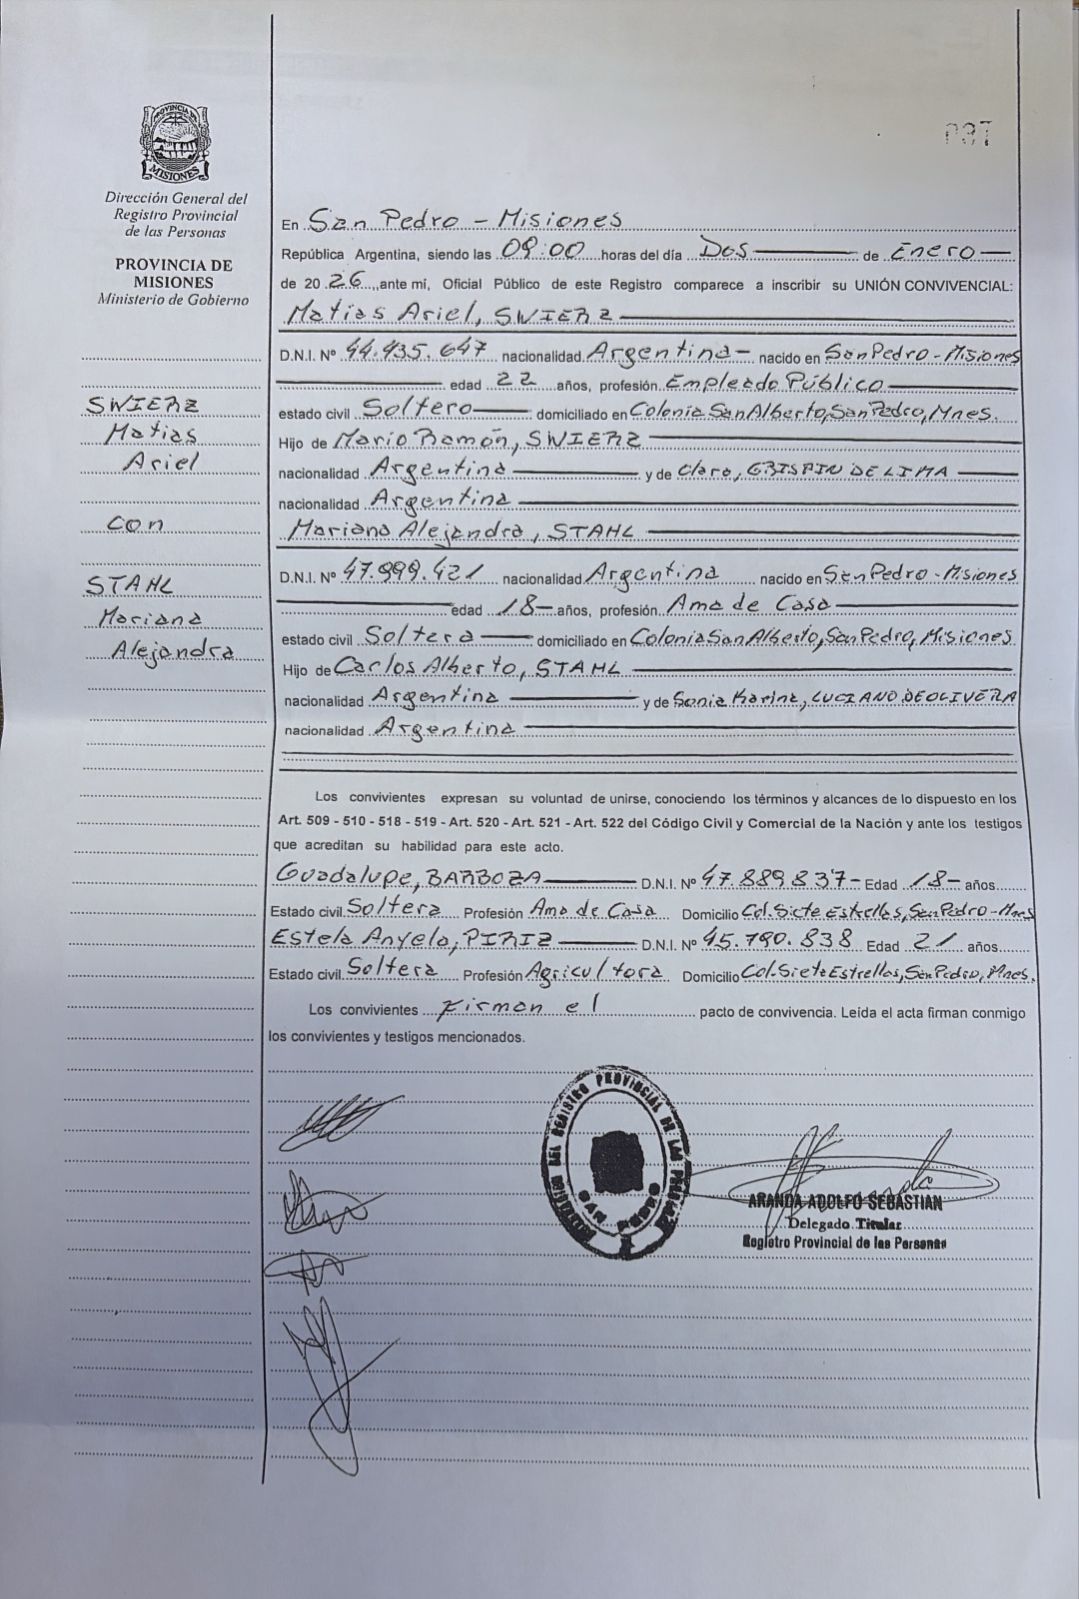 PROVINCIA DE
MISIONES
Dirección General del
Registro Provincial
de las Personas
PROVINCIA DE
MISIONES
Ministerio de Gobierno
SWIERZ
Matias
Ariel
con
STAHL
Mariana
Alejandra
En San Pedro - Misiones
República Argentina, siendo las 09:00 horas del día Dos de Enero
de 2026, ante mi, Oficial Público de este Registro comparece a inscribir su UNIÓN CONVIVENCIAL:
Matias Ariel, SWIERZ
D.N.I. Nº 44.435.647 nacionalidad Argentina - nacido en San Pedro - Misiones
edad 22 años, profesión Empleado Público
estado civil Soltero domiciliado en Colonia San Alberto, San Pedro, Mnes.
Hijo de Mario Ramón, SWIERZ
nacionalidad Argentina y de Clara, CRISPIN DE LIMA
nacionalidad Argentina
Mariana Alejandra, STAHL
D.N.I. Nº 47.999.421 nacionalidad Argentina nacido en San Pedro - Misiones
edad 18 años, profesión Ama de Casa
estado civil Soltera domiciliado en Colonia San Alberto, San Pedro, Misiones
Hijo de Carlos Alberto, STAHL
nacionalidad Argentina y de Sonia Karina, LUCIANO DEOLIVERA
nacionalidad Argentina
Los convivientes expresan su voluntad de unirse, conociendo los términos y alcances de lo dispuesto en los
Art. 509 - 510 - 518 - 519 - Art. 520 - Art. 521 - Art. 522 del Código Civil y Comercial de la Nación y ante los testigos
que acreditan su habilidad para este acto.
Guadalupe, BARBOZA D.N.I. Nº 47.889.837 - Edad 18 - años
Estado civil Soltera Profesión Ama de Casa Domicilio Col. Siete Estrellas, San Pedro - Mnes
Estela Anyela, PIRIZ D.N.I. Nº 45.790.838 Edad 21 años
Estado civil Soltera Profesión Agricultora Domicilio Col. Siete Estrellas, San Pedro, Mnes.
Los convivientes firman el pacto de convivencia. Leída el acta firman conmigo
los convivientes y testigos mencionados.
DEL REGISTRO PROVINCIAL DE LAS
SAN PEDRO
ARANDA ADOLFO SEBASTIAN
Delegado Titular
Registro Provincial de las Personas